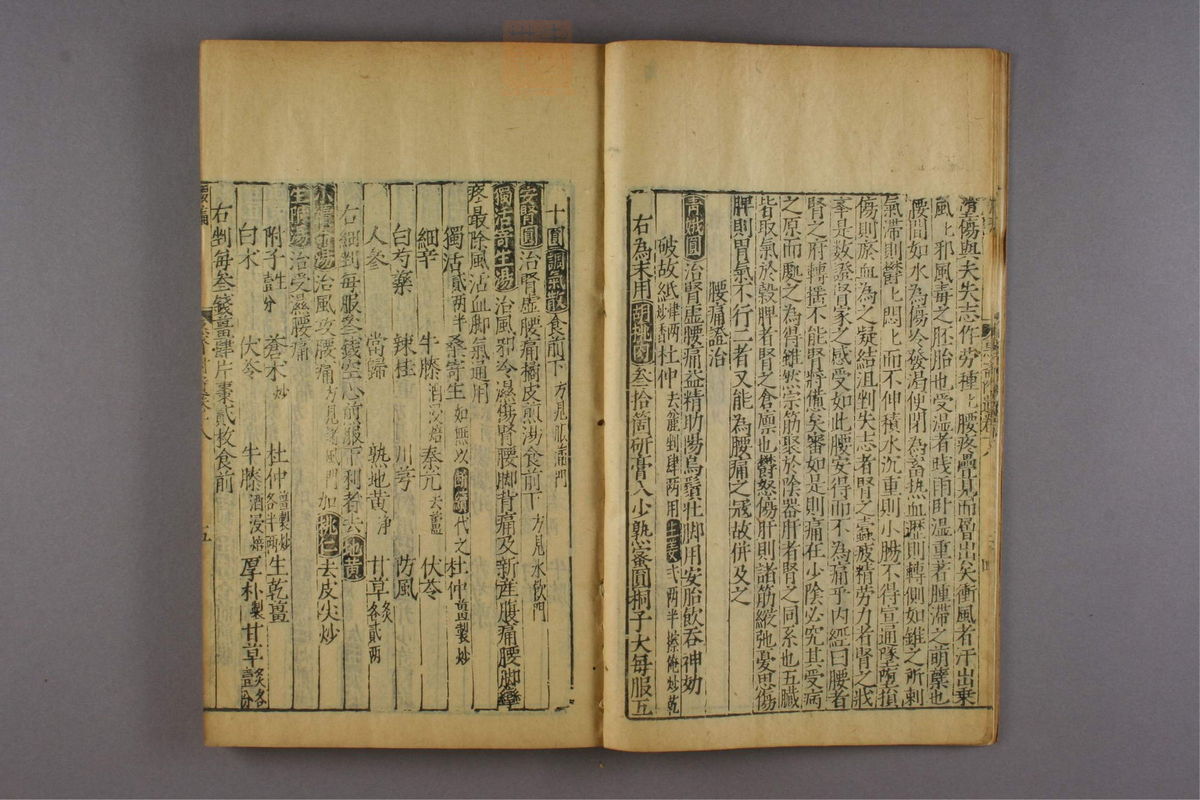 墜傷與夫失志作勞種〻腰疼疊見而層出矣衝風者汗出乘
風〻邪風毒之胚胎也受濕者踐雨卧濕重著腫滯之萌蘖也
腰間如水為傷冷發渴便閉為畜熱血瀝則轉側如錐之所刺
氣滯則鬱〻悶〻而不伸積水沉重則小腸不得宣通墜墮損
傷則瘀血為之凝結沮判失志者腎之蠹疲精勞力者腎之戕
舉是數證腎家之感受如此腰安得而不為痛乎內經曰腰者
腎之府轉摇不能腎將憊矣審如是則痛在少陰必究其受病
之原而處之為得雖然宗筋聚於陰器肝者腎之同系也五臟
皆取氣於穀脾者腎之倉廪也鬱怒傷肝則諸筋縱弛憂思傷
脾則胃氣不行二者又能為腰痛之冦故併及之
腰痛證治
青娥圓 治腎虛腰痛益精助陽烏鬚壯脚用安胎飲吞神効
破故紙 肆两炒香 杜仲 去麄剉肆两用生薑弍两半擦淹炒乾
右為末用胡桃肉叁拾箇研膏入少熟蜜圓桐子大每服五
十圓調氣散食前下 方見脹滿門
安腎圓 治腎虛腰痛橘皮煎湯食前下 方見水飲門
獨活寄生湯 治風邪冷濕傷腎腰脚背痛及新産腹痛腰脚攣
疼最除風活血脚氣通用
獨活 貳两半 桑寄生 如無以續斷代之 杜仲 薑製炒
細辛 牛膝 酒浸焙 秦艽 去蘆 伏苓
白芍藥 辣桂 川芎 防風
人參 當歸 熟地黄 淨 甘草 炙各貳两
右細剉每服叁錢空心前服下利者去地黄
小續命湯 治風攻腰痛 方見諸風門 加桃仁去皮尖炒
生附湯 治受濕腰痛
附子 生壹分 蒼术 炒 杜仲 薑製炒各半两 生乾薑
白术 伏苓 牛膝 酒浸焙 厚朴 製 甘草 炙各壹分
右剉每叁錢薑肆片棗貳枚食前